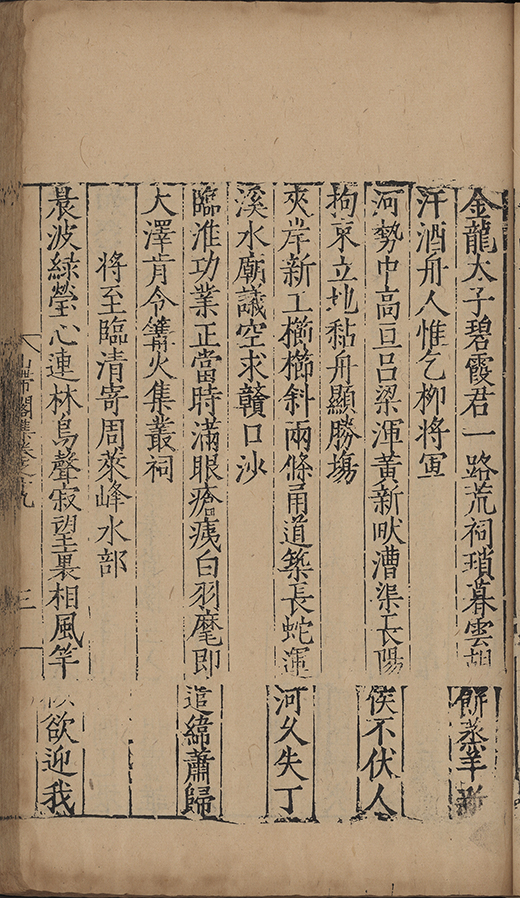 金龍太子碧霞君一路荒祠瑣暮雲胡餅蒸羊
汗酒舟人惟乞柳將軍
河勢中高亘呂梁渾黃新吠漕渠長陽侯不伏人
拘束立地黏舟顯勝塲
夾岸新工櫛櫛斜兩條甬道築長蛇運河久失丁
溪水廟議空求贛口沙
臨淮功業正當時滿眼瘡痍白羽麾即遣緯蕭歸
大澤肯令篝火集叢祠
將至臨清寄周萊峰水部
晨波綠瑩心連林鳥聲寂望裏相風竿欲迎我
山帶閣集卷之十九
三